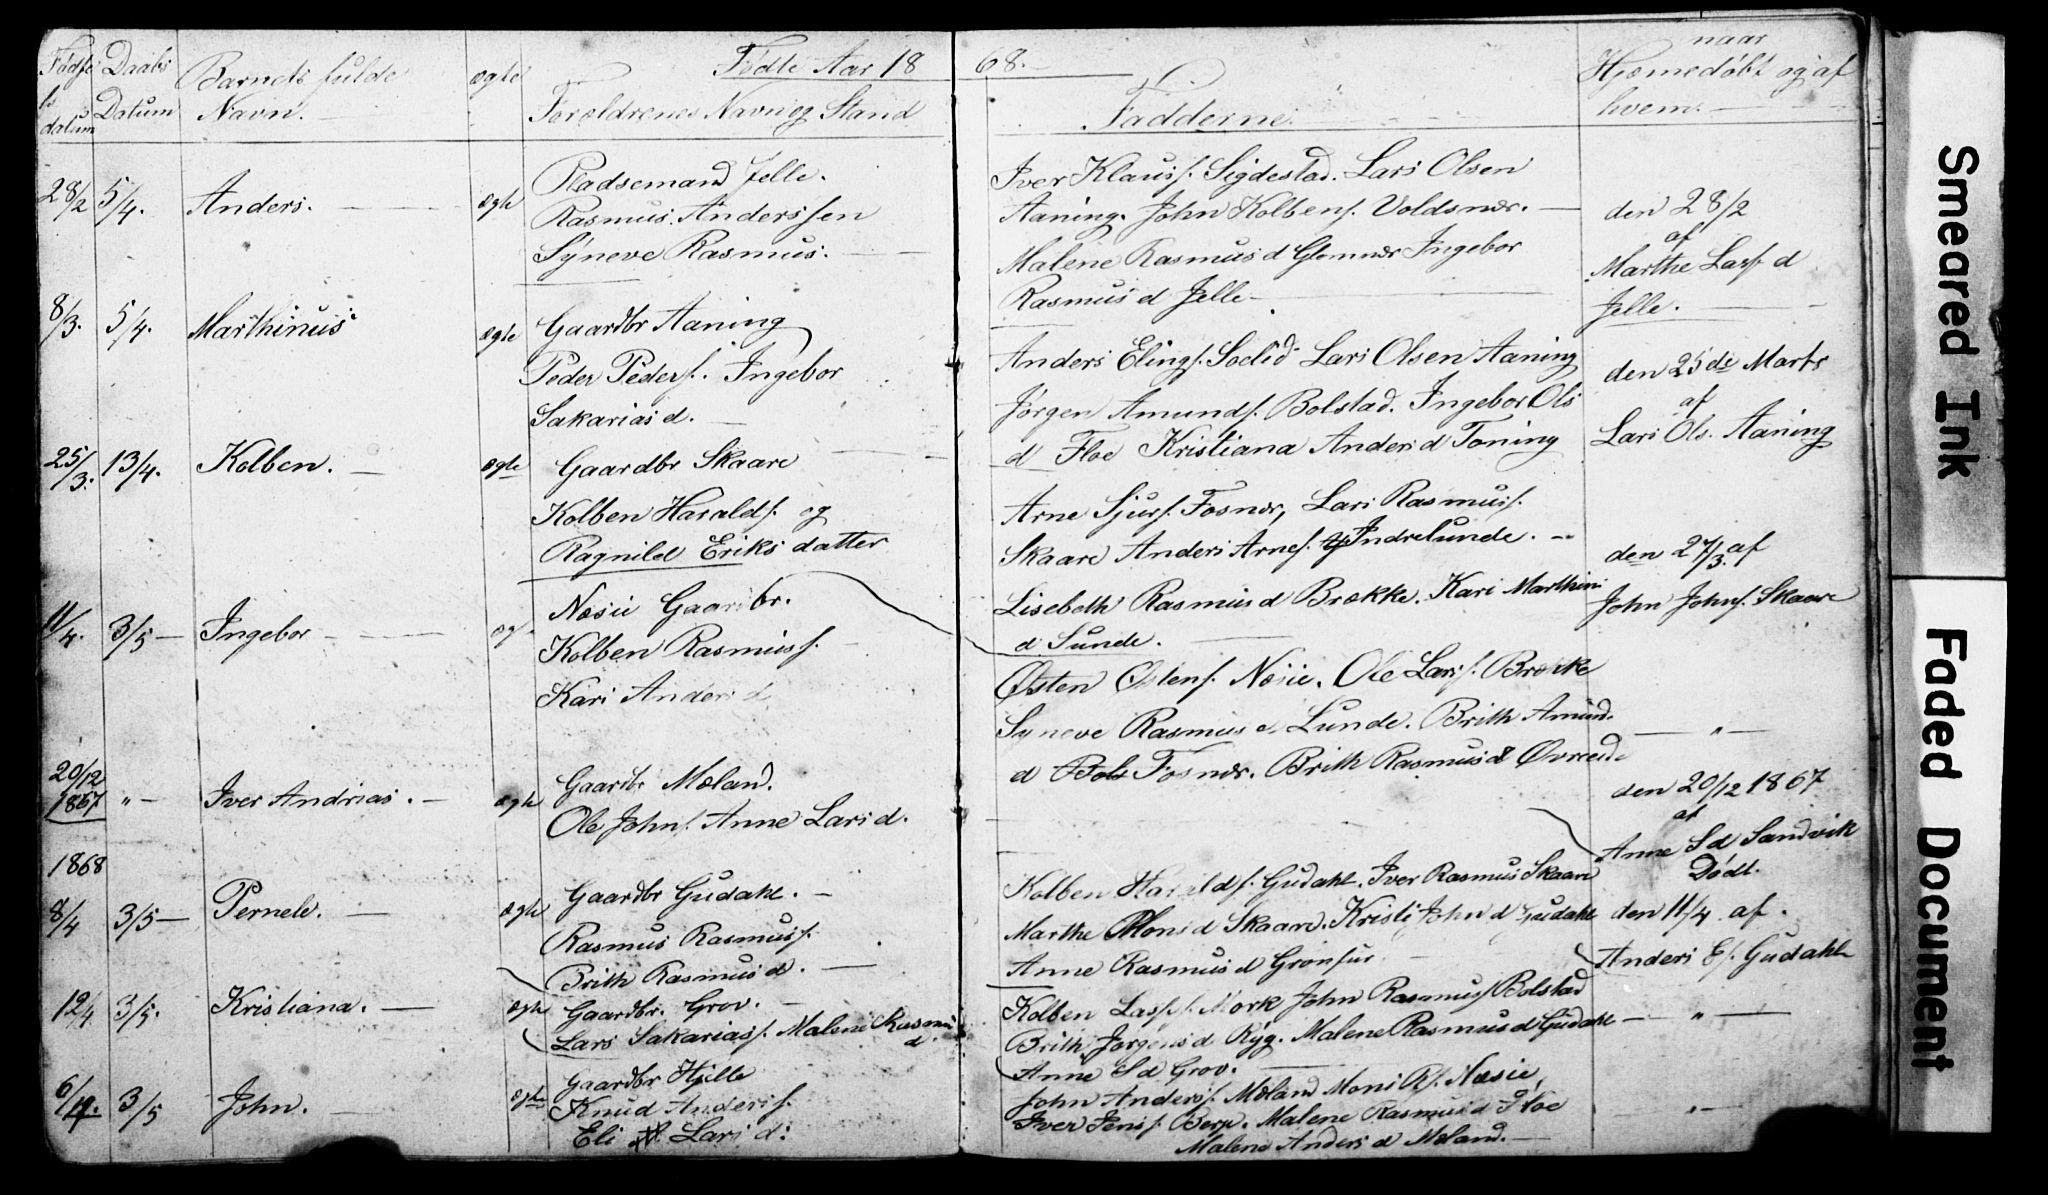 Fødte Aar 1868.
Fødselsdatum
Daabs Datum
Barnets fulde Navn.
ægte
Forældrenes Navn og Stand
Fadderne.
naar Hjemedøbt og af hvem.
28/2 5/4. Anders. ægte
Pladsemand Jelle.
Rasmus Anderssen
Syneve Rasmus.
Iver Klauss. Sigdestad. Lars Olsen
Aaning. John Kolbens. Voldsnær.
Malene Rasmus d Glomnær Ingebor
Rasmus d Jelle
den 28/2
af
Marthe Lass d
Jelle.
8/3. 5/4. Marthinus ægte
Gaardbr Aaning
Peder Peders. Ingebor
Sakarias d.
Anders Elings. Solid Lars Olsen Aaning
Jørgen Amunds. Bolstad. Ingebor Ols
d Floe Kristiana Anders d Toning
den 25de Marts
af
Lars Ols. Aaning
25/3. 13/4. Kolben. ægte
Gaardbr Skaare
Kolben Haralds. og
Ragnild Eriks datter
Arne Sjurs. Fosnær, Lars Rasmuss.
Skaare Anders Arnes. Indrelunde.
Lisebeth Rasmus d Brække. Kari Marthin
d Sunde.
den 27/3. af
John Johns. Skaare
11/4. 3/5 Ingebor æg
Næsie Gaardbr.
Kolben Rasmuss.
Kari Anders d
Østen Østens. Næsie. Ole Lars s. Brække
Syneve Rasmus d Lunde. Brith Amund.
d Bols Fosnær. Brith Rasmus d Øvreeide
"
20/12 1867 " Iver Andrias. ægte
Gaardbr Mæland.
Ole Johns. Anne Lars d.
den 20/12 1867
af
Anne S d Sandvik
Dødt.
1868
8/4 3/5 Pernele. ægte
Gaardbr Gudahl.
Rasmus Rasmuss.
Brith Rasmus d.
Kolben Haralds. Gudahl. Iver Rasmus Skaare
Marthe Mons d Skaare. Kristi John d Gudahl
Anne Rasmus d Gronfur
den 11/4 af.
Anders E s. Gudahl
12/4 3/5. Kristiana. ægte
Gaardbr. Grov.
Lars Sakariass. Malene Rasmu
d.
Kolben Lasses. Mork John Rasmuss Bolstad
Brith Jørgens d Ryg. Malene Rasmus d Gudahl
Anne S d Grov.
"
6/4. 3/5 John. ægte
Gaardbr Hjelle
Knud Anders s.
Eli Lars d.
John Anders s. Mæland Mons R s. Næsie,
Iver Jens s. Berge. Malene Rasmus d Floe
Malene Anders d Mæland.
"
Smeared Ink
Faded Document